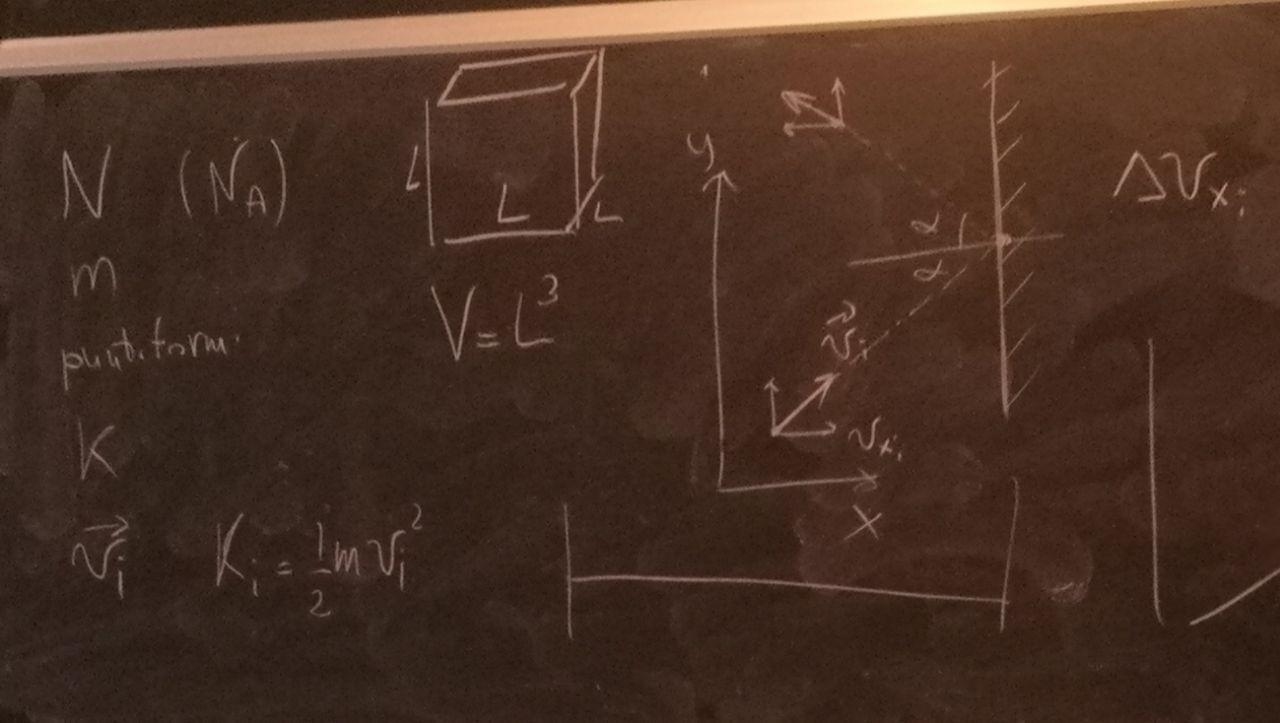 N (N_A)
m
puntiform.
K
v⃗_i K_i = 1/2 m v_i^2
L
L
L
V = L^3
y
α
α
v⃗_i
v_xi
x
Δv_xi